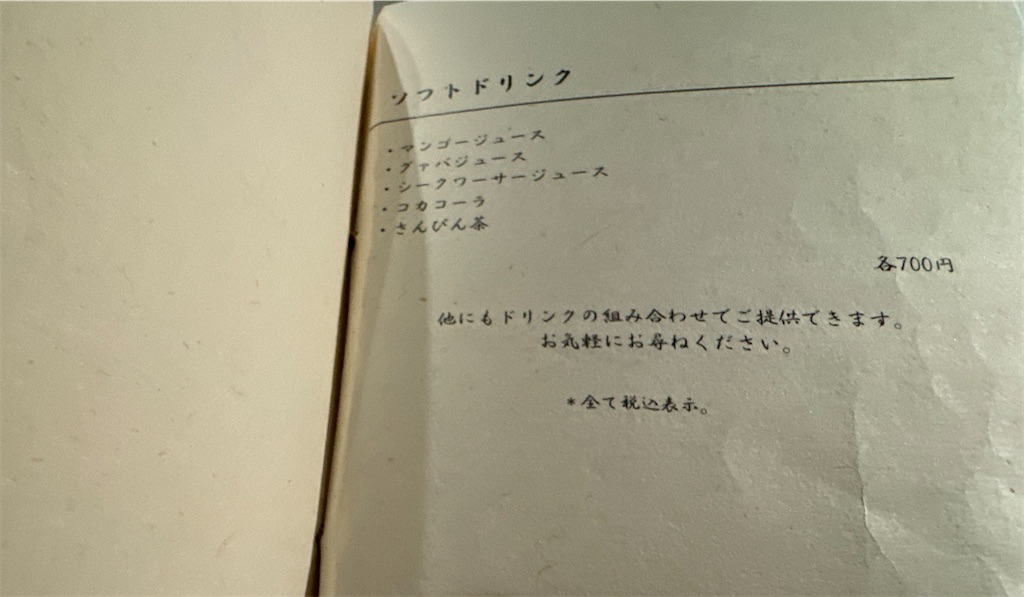 ソフトドリンク
・マンゴージュース
・グァバジュース
・シークワーサージュース
・コカコーラ
・さんぴん茶
各700円
他にもドリンクの組み合わせでご提供できます。
お気軽にお尋ねください。
*全て税込表示。